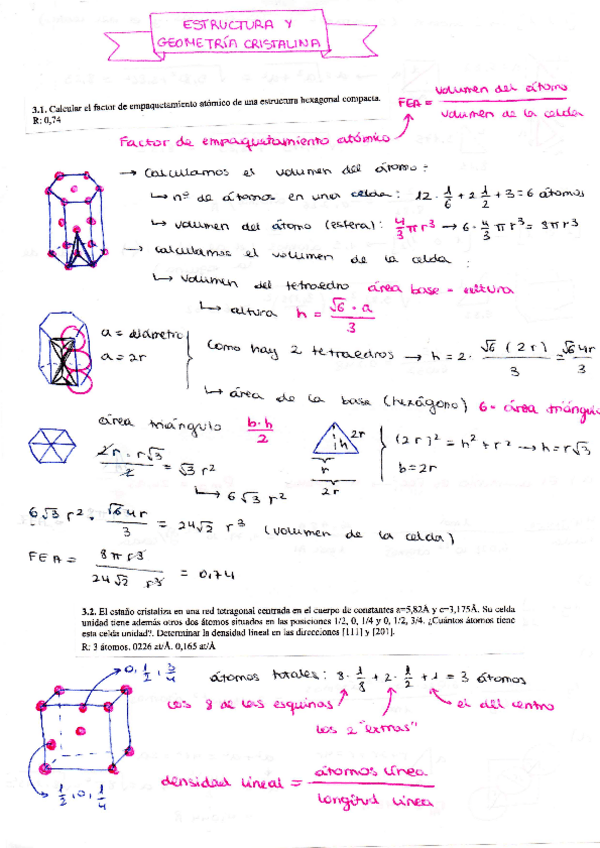 ESTRUCTURA Y
GEOMETRÍA CRISTALINA
3.1. Calcular el factor de empaquetamiento atómico de una estructura hexagonal compacta.
R: 0,74
FEA = volumen del átomo / volumen de la celda
Factor de empaquetamiento atómico
→ Calculamos el volumen del átomo:
↳ nº de átomos en una celda: 12 · 1/6 + 2 · 1/2 + 3 = 6 átomos
↳ volumen del átomo (esfera): 4/3 π r³ → 6 · 4/3 π r³ = 8π r³
→ calculamos el volumen de la celda:
↳ volumen del tetraedro área base · altura
↳ altura h = √6 · a / 3
a = diámetro
a = 2r
Como hay 2 tetraedros → h = 2 · √6 (2r) / 3 = √6 4r / 3
↳ área de la base (hexágono) 6 · área triángulo
área triángulo b·h / 2
2r
h
r
2r
(2r)² = h² + r² → h = r√3
b = 2r
2r · r√3 / 2 = √3 r²
↳ 6√3 r²
6√3 r² · √6 4r / 3 = 24√2 r³ (volumen de la celda)
FEA = 8π r³ / 24√2 r³ = 0,74
3.2. El estaño cristaliza en una red tetragonal centrada en el cuerpo de constantes a=5,82Å y c=3,175Å. Su celda
unidad tiene además otros dos átomos situados en las posiciones 1/2, 0, 1/4 y 0, 1/2, 3/4. ¿Cuántos átomos tiene
esta celda unidad?. Determinar la densidad lineal en las direcciones [111] y [201].
R: 3 átomos. 0226 at/Å. 0,165 at/Å
0, 1/2, 3/4
átomos totales: 8 · 1/8 + 2 · 1/2 + 1 = 3 átomos
Los 8 de las esquinas
el del centro
Los 2 "extras"
densidad lineal = átomos línea / longitud línea
1/2, 0, 1/4